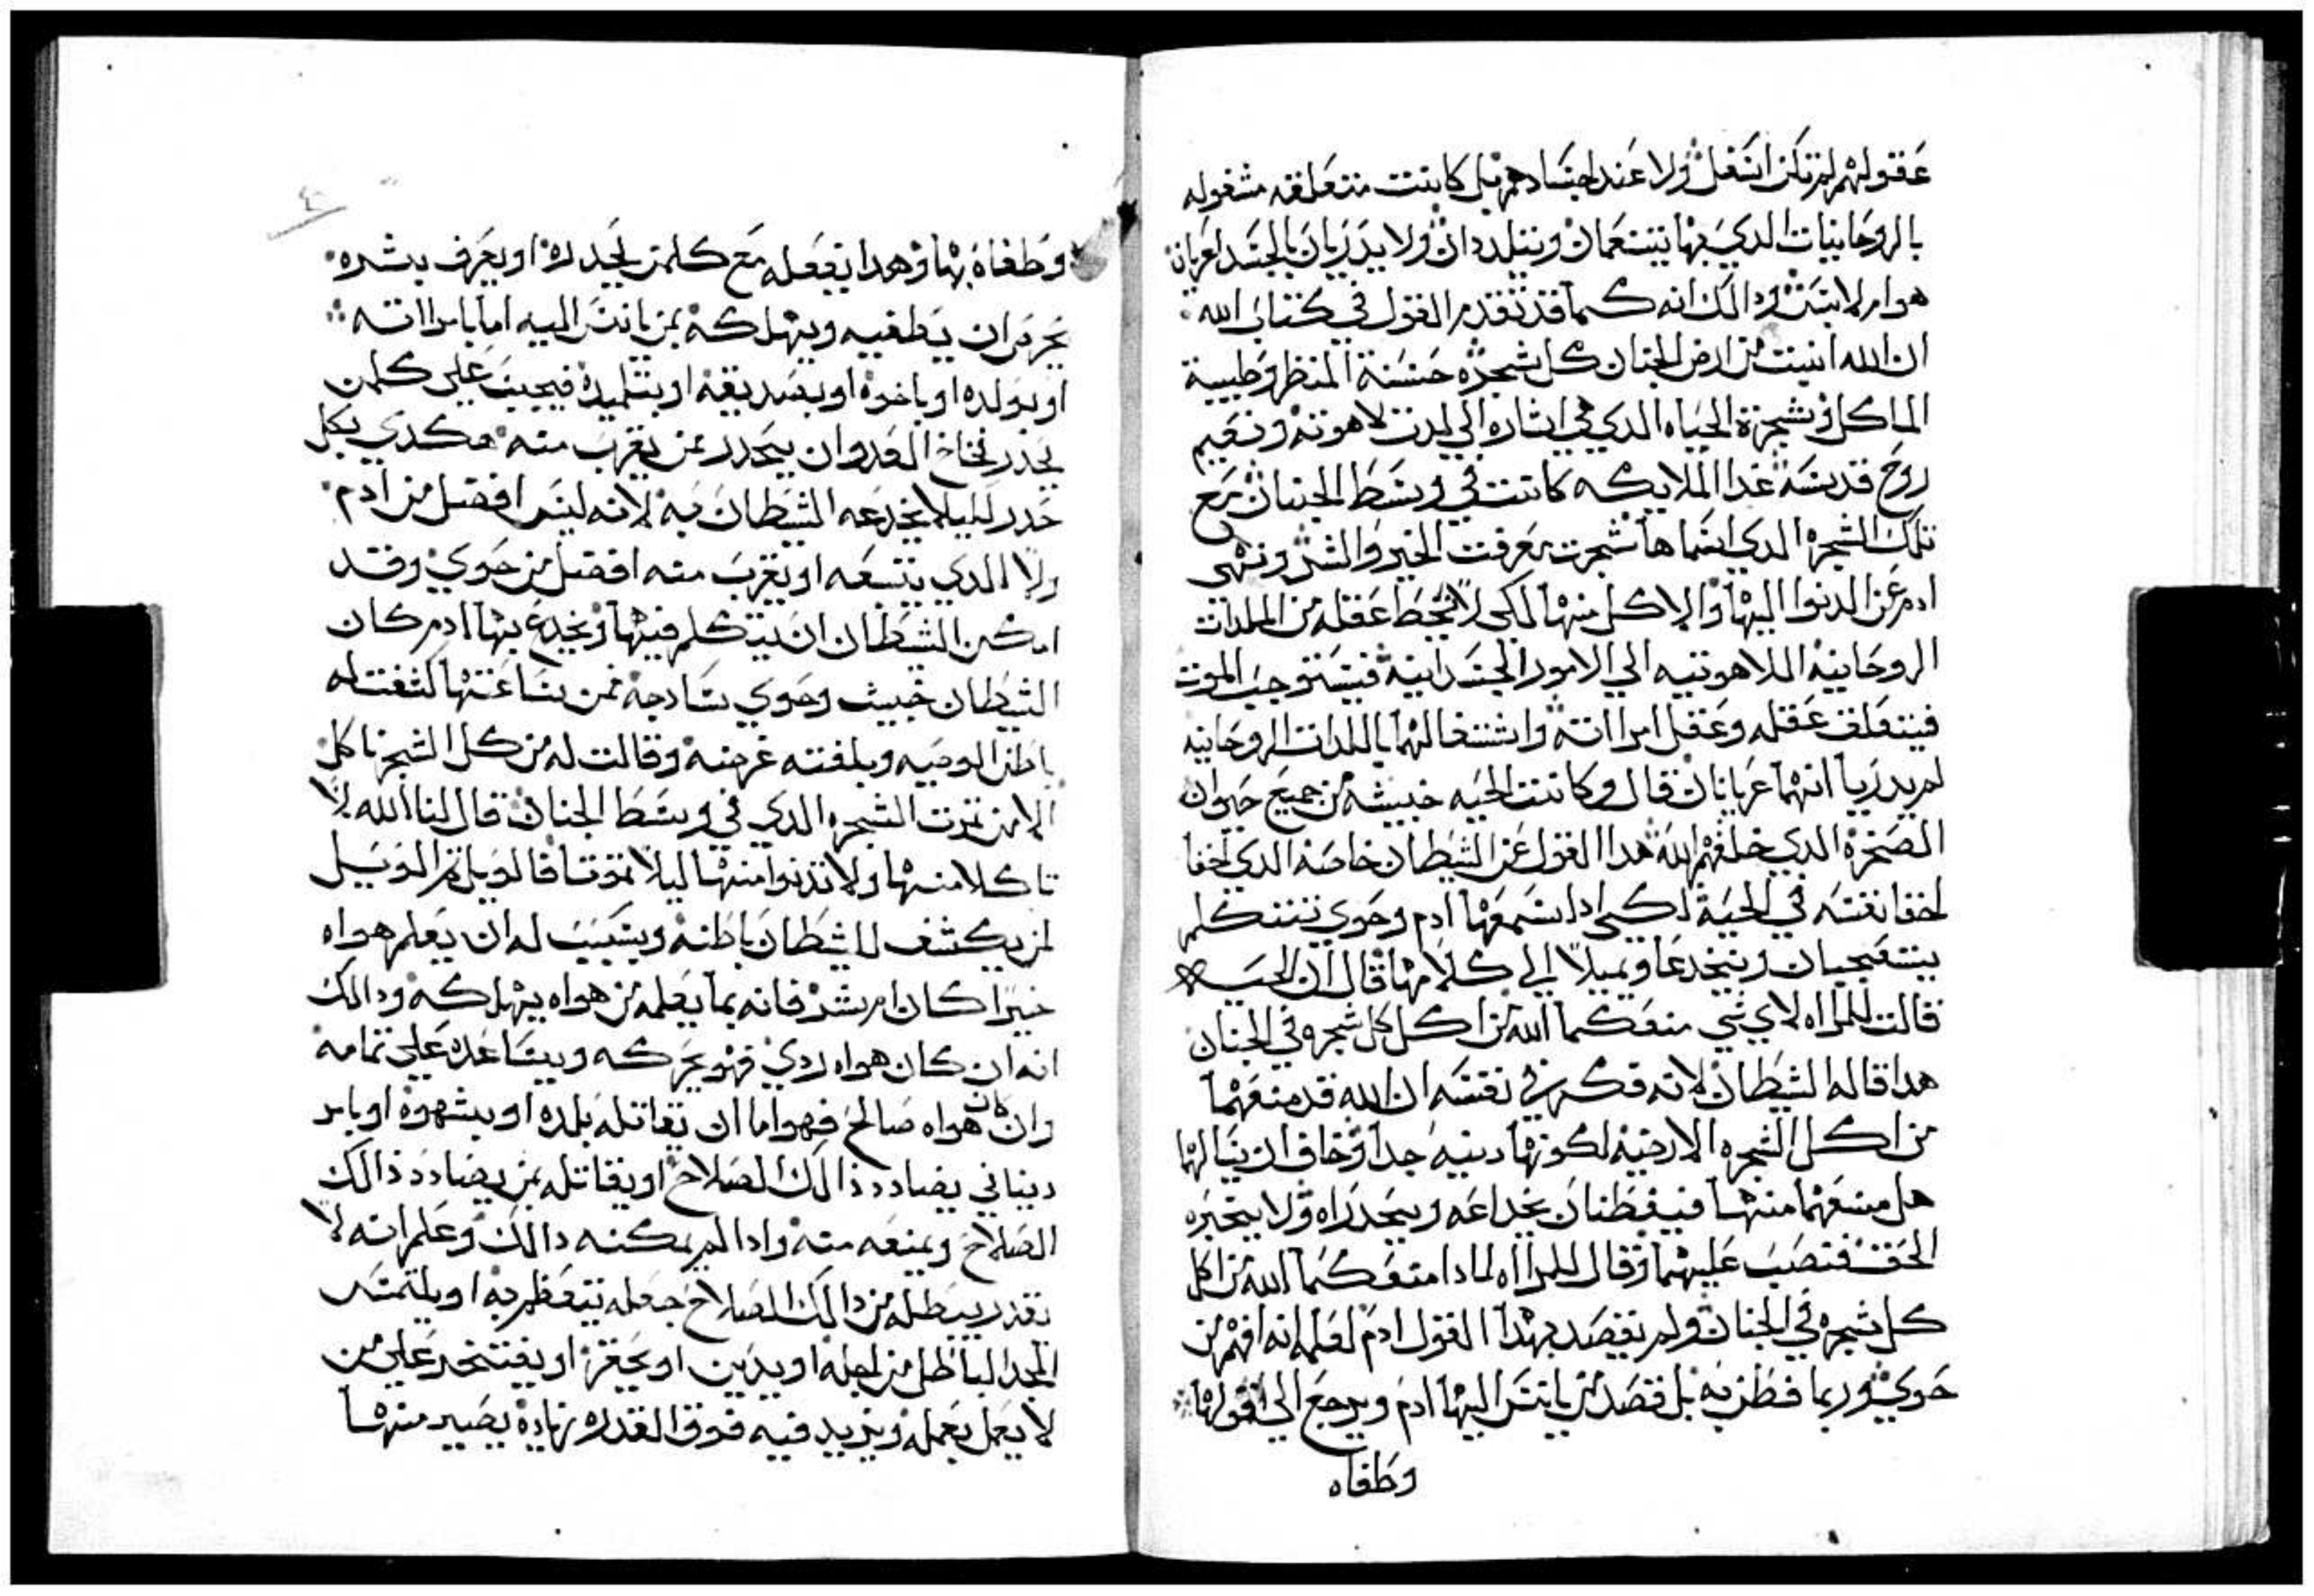 عقولهم لم تكن اشتغل ولا عند اجسادهم بل كانت متعلقه مشغوله
بالروحانيات الدي بها يتنعمان ويتلددان ولا يدريان بالجسد لعريان
هو ام لابس ودالك انه كما قد تقدم القول في كتاب الله
ان الله انبت من ارض الجنان كل شجره حسنة المنظر وطيبة
الماكل وشجرة الحياه الدي هي اشاره الي لدت لاهوته ونعيم
روح قدسه غدا الملايكه كانت في وسط الجنان مع
تلك الشجره الدي اسماها شجرت معرفت الخير والشر ونهي
ادم عن الدنوا اليها والاكل منها لكي لا تحط عقله من الملدات
الروحانية اللاهوتيه الي الامور الجسدانية فيستوجب الموت
فيتعلق عقله وعقل امرااته واشتغالهما باللدات الروحانيه
لم يدريا انهما عريانان قال وكانت الحيه خبيثه من جميع حيوان
الصخرة الدي خلقهم الله هدا القول عن الشيطان خاصة الدي اخفا
اخفا نفسه في الحية لكي ادا سمعها ادم وحوي تتكلم
يتعجبان وينخدعا ويميلا الي كلامها قال ان الحيه
قالت للمراه لاي شي منعكما الله من اكل كل شجره في الجنان
هدا قاله الشيطان لانه فكر في نفسه ان الله قد منعهما
من اكل الشجره الارضية لكونها دنيه جدا وخاف ان يسالهما
هل منعهما منها فيفطنان بخداعه ويتحدراه ولا يتخبره
الحق فنصب عليهما وقال للمرااه لمادا منعكما الله من اكل
كل شجره في الجنان ولم يقصد بهدا القول ادم لعلمه انه افهم من
حوي وربما فطن به بل قصد من يانس اليها ادم ويرجع الي اقوالها
وطفاه
وطفاه بها وهدا يفعله مع كلمن يحدره او يعرف بشره
يحرص ان يطغيه ويهلكه بمن يانس اليه اما بامرااته
او بولده او باخوه او بصديقه او بتلميده فيجب علي كلمن
يحذر فخاخ العدو ان يتحدر ممن يقرب منه هكدي بكل
حدر ليلا يخدعه الشيطان به لانه ليس افضل من ادم
ولا الدي يتسعه او يقرب منه افضل من حوي وقد
امكن الشيطان ان يتكلم فيها ويخدع بها ادم كان
الشيطان خبيث وحوي سادجه فمن ساعتها كشفت له
باطن الوصيه وبلغته غرضه وقالت له من كل الشجر ناكل
الا من تمرت الشجره الدي في وسط الجنان قال لنا الله لا
تاكلا منها ولا تدنوا منها ليلا تموتا فالويل تم الويل
لمن يكشف للشيطان باطنه ويسبب له ان يعلم هواه
خيرا كان ام شر فانه بما يعلمه من هواه يهلكه ودالك
انه ان كان هواه ردي فهو يحركه ويساعده علي تمامه
وان كان هواه صالح فهو اما ان يقاتله بلده او بشهوة او بامر
دنياني يضادد ذالك الصلاح او يقاتله بمن يضادد ذالك
الصلاح ويمنعه منه وادا لم يمكنه دالك وعلم انه لا
يقدر يبطله من دالك الصلاح جعله يتعظم به او يلتمس
المجد الباطل من اجله او يدين او يحقر او يفتخر علي من
لا يعمل بعمله ويزيد فيه فوق القدره زيادة يصير منها